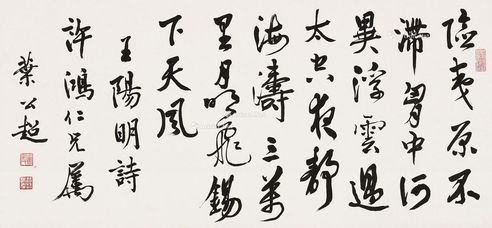 險夷原不
滯胸中何
異浮雲過
太空夜靜
海濤三萬
里月明飛錫
下天風
王陽明詩
許鴻仁兄屬
葉公超